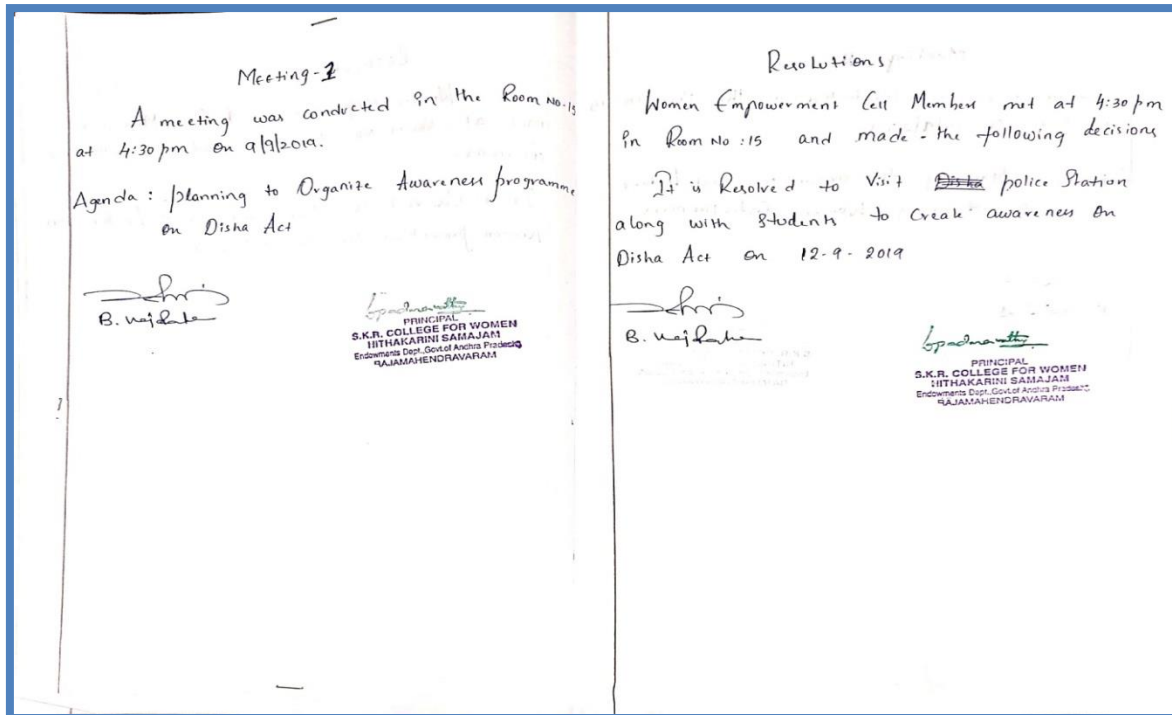 Meeting-1
A meeting was conducted in the Room No.15
at 4:30 pm on 9/9/2019.
Agenda : planning to Organize Awareness programme
on Disha Act
B.
PRINCIPAL
S.K.R. COLLEGE FOR WOMEN
HITHAKARINI SAMAJAM
Endowments Dept.,Govt.of Andhra Pradesh
RAJAMAHENDRAVARAM
Resolutions
Women Empowerment Cell Members met at 4:30 pm
in Room No :15 and made the following decisions
It is Resolved to Visit Disha police Station
along with students to Create awareness on
Disha Act on 12-9-2019
B.
PRINCIPAL
S.K.R. COLLEGE FOR WOMEN
HITHAKARINI SAMAJAM
Endowments Dept.,Govt.of Andhra Pradesh
RAJAMAHENDRAVARAM